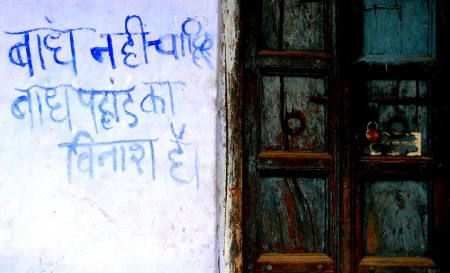 बांध नही चाहिए
बाध पहाड का
विनाश है।